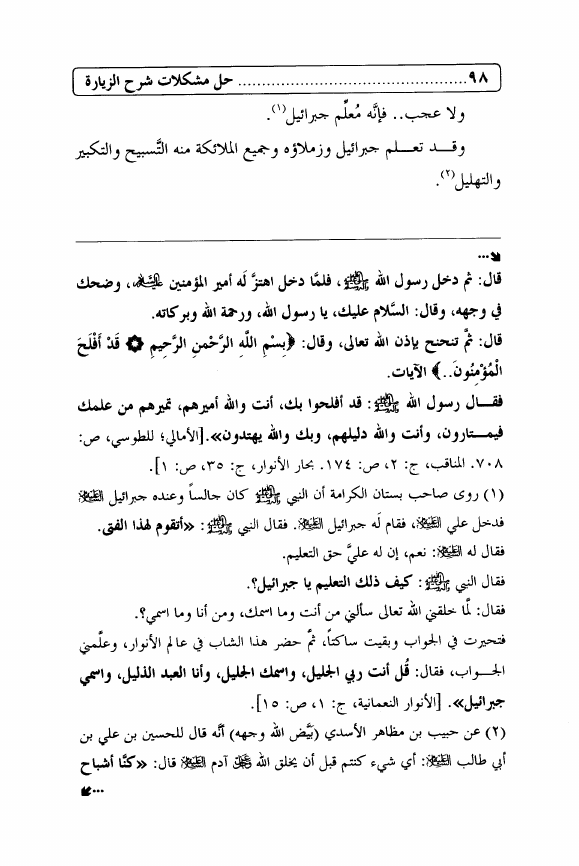 ٩٨ ................................................ حل مشكلات شرح الزيارة
ولا عجب.. فإنَّه مُعلِّم جبرائيل(١).
وقـــد تعـــلم جبرائيل وزملاؤه وجميع الملائكة منه التَّسبيح والتكبير
والتهليل(٢).
...
قال: ثم دخل رسول الله ﷺ، فلمَّا دخل اهتزَّ لَه أمير المؤمنين عليه السلام، وضحك
في وجهه، وقال: السَّلام عليك، يا رسول الله، ورحمة الله وبركاته.
قال: ثمَّ تنحنح بإذن الله تعالى، وقال: ﴿بِسْمِ اللَّهِ الرَّحْمنِ الرَّحِيمِ ۞ قَدْ أَفْلَحَ
الْمُؤْمِنُونَ..﴾ الآيات.
فقـــال رسول الله ﷺ: قد أفلحوا بك، أنت والله أميرهم، تميرهم من علمك
فيمـــتارون، وأنت والله دليلهم، وبك والله يهتدون».[الأمالي؛ للطوسي، ص:
٧٠٨. المناقب، ج: ٢، ص: ١٧٤. بحار الأنوار، ج: ٣٥، ص: ١].
(١) روى صاحب بستان الكرامة أن النبي ﷺ كان جالساً وعنده جبرائيل عليه السلام
فدخل علي عليه السلام، فقام لَه جبرائيل عليه السلام. فقال النبي ﷺ: «أتقوم لهذا الفتى.
فقال له عليه السلام: نعم، إن له عليَّ حق التعليم.
فقال النبي ﷺ: كيف ذلك التعليم يا جبرائيل؟.
فقال: لمَّا خلقني الله تعالى سألني من أنت وما اسمك، ومن أنا وما اسمي؟.
فتحيرت في الجواب وبقيت ساكتاً، ثمَّ حضر هذا الشاب في عالم الأنوار، وعلَّمني
الجـــواب، فقال: قُل أنت ربي الجليل، واسمك الجليل، وأنا العبد الذليل، واسمي
جبرائيل». [الأنوار النعمانية، ج: ١، ص: ١٥].
(٢) عن حبيب بن مظاهر الأسدي (بَيَّض الله وجهه) أنَّه قال للحسين بن علي بن
أبي طالب عليه السلام: أي شيء كنتم قبل أن يخلق الله ﷻ آدم عليه السلام قال: «كنَّا أشباح
...